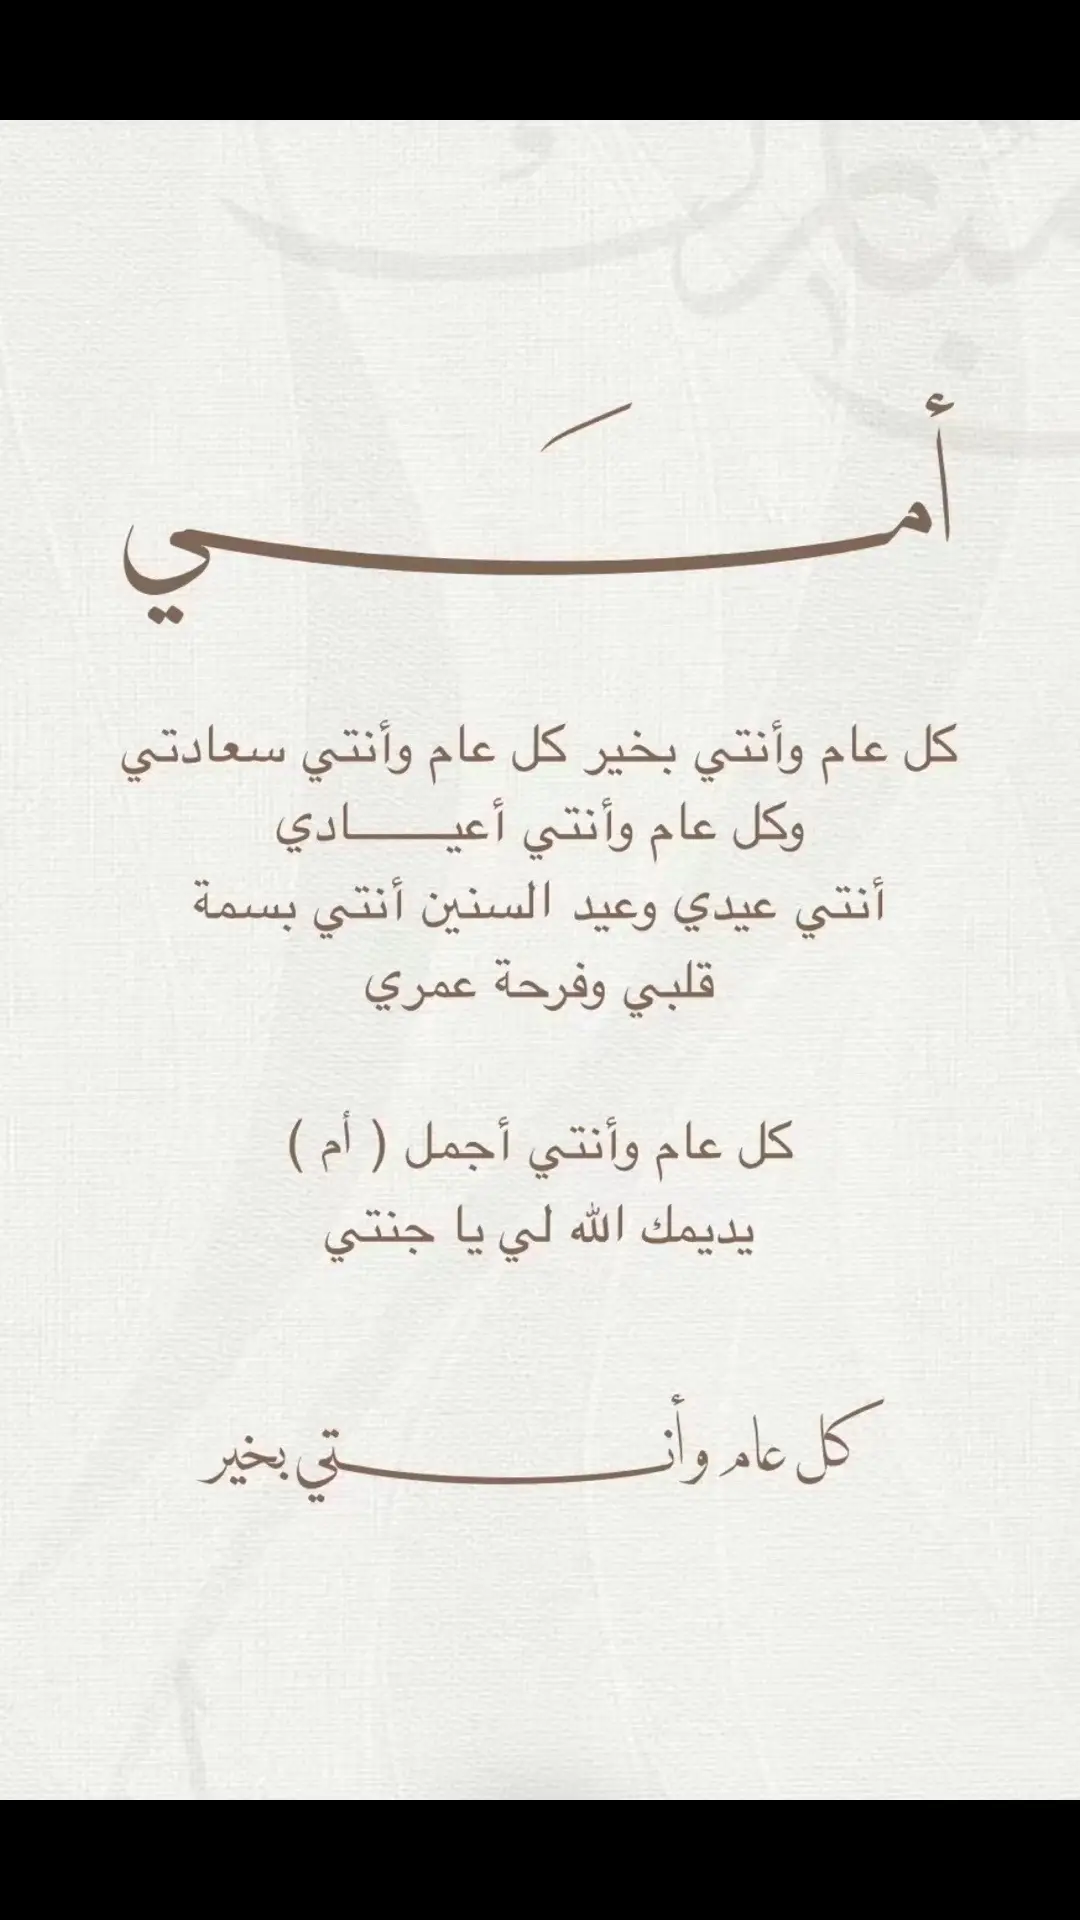 أمَـــي
كل عام وأنتي بخير كل عام وأنتي سعادتي
وكل عام وأنتي أعيـــــادي
أنتي عيدي وعيد السنين أنتي بسمة
قلبي وفرحة عمري
كل عام وأنتي أجمل ( أم )
يديمك الله لي يا جنتي
كل عام وأنـــــتي بخير